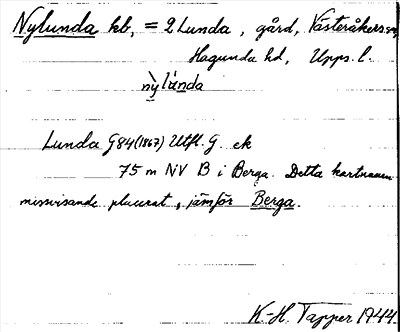 Nylunda kb, = 2 Lunda, gård, Västeråkers sn,
Hagunda hd, Upps. l.
nỳlúnda
Lunda G84 (1867) Utfl. G. ek
75 m NV B i Berga. Detta kartnamn
missvisande placerat, jämför Berga.
K-H. Tapper 1944.